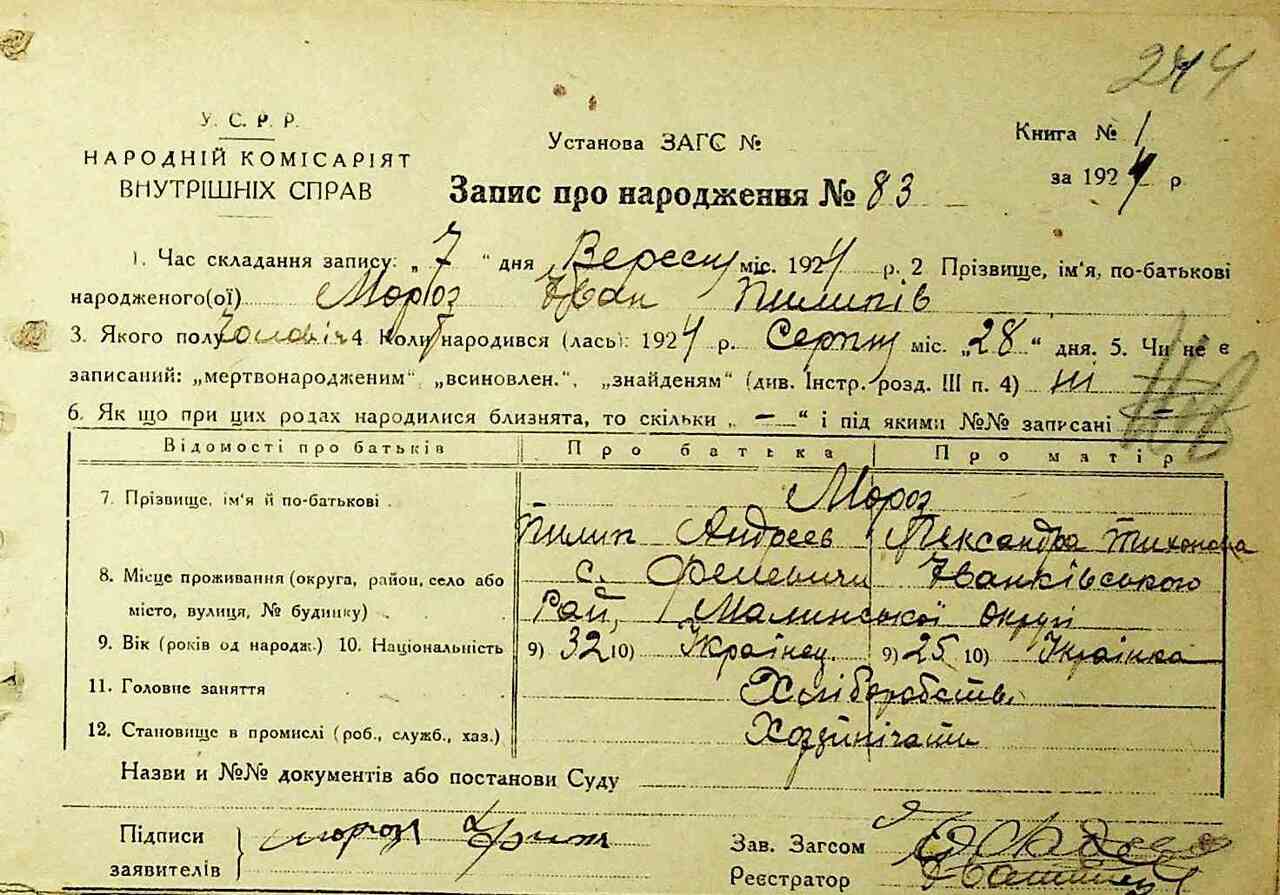 244
У. С. Р. Р.
НАРОДНІЙ КОМІСАРІЯТ
ВНУТРІШНІХ СПРАВ
Установа ЗАГС №
Книга № 1
за 1924 р
Запис про народження № 83
1. Час складання запису: „ 7 “ дня Вересн міс. 1924 р. 2 Прізвище, ім'я, по-батькові
народженого(ої) Мороз Іван Пилипів
3. Якого полу 4 Коли народився (лась): 1924 р. Серпн міс. „28“ дня. 5. Чи не є
записаний: „мертвонародженим“, „всиновлен.“, „знайденям“ (див. Інстр. розд. III п. 4) Ні
6. Як що при цих родах народилися близнята, то скільки „ — “ і під якими №№ записані —
Відомості про батьків Про батька Про матір
7. Прізвище, ім'я й по-батькові Мороз
Пилип Андреев Олександра Тихонова
8. Місце проживання (округа, район, село або с. Іванківського
місто, вулиця, № будинку) Рай, Малинської округі
9. Вік (років од народж.) 10. Національність 9) 32 10) Українец 9) 25 10) Українка
11. Головне заняття Хліборобств.
12. Становище в промислі (роб., служб., хаз.)
Назви и №№ документів або постанови Суду
Підписи
заявителів } мороз
Зав. Загсом
Реєстратор